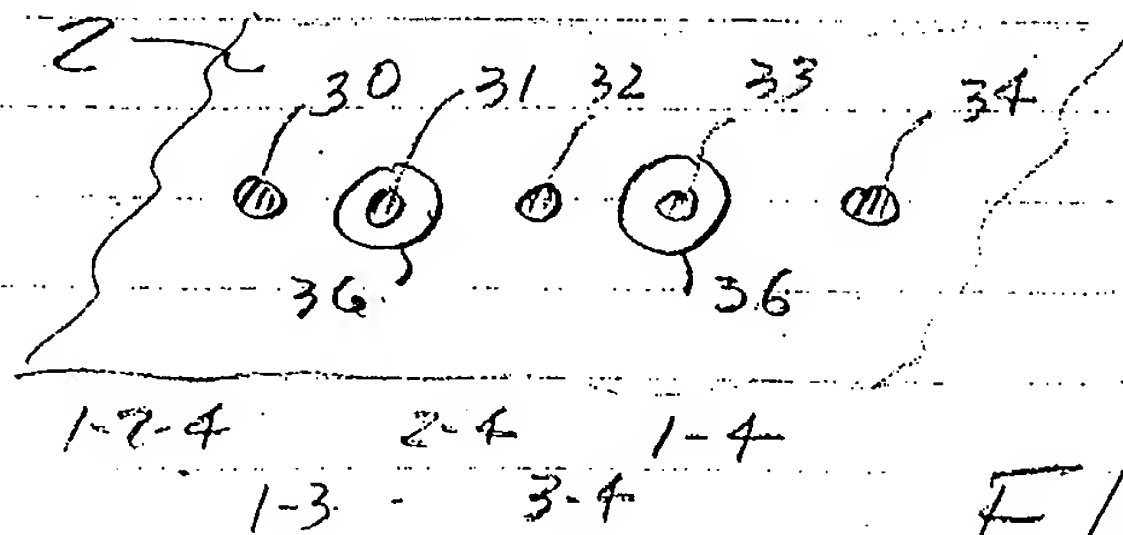 2
30 31 32 33 34
36 36
1-2-4 2-4 1-4
1-3 - 3-4